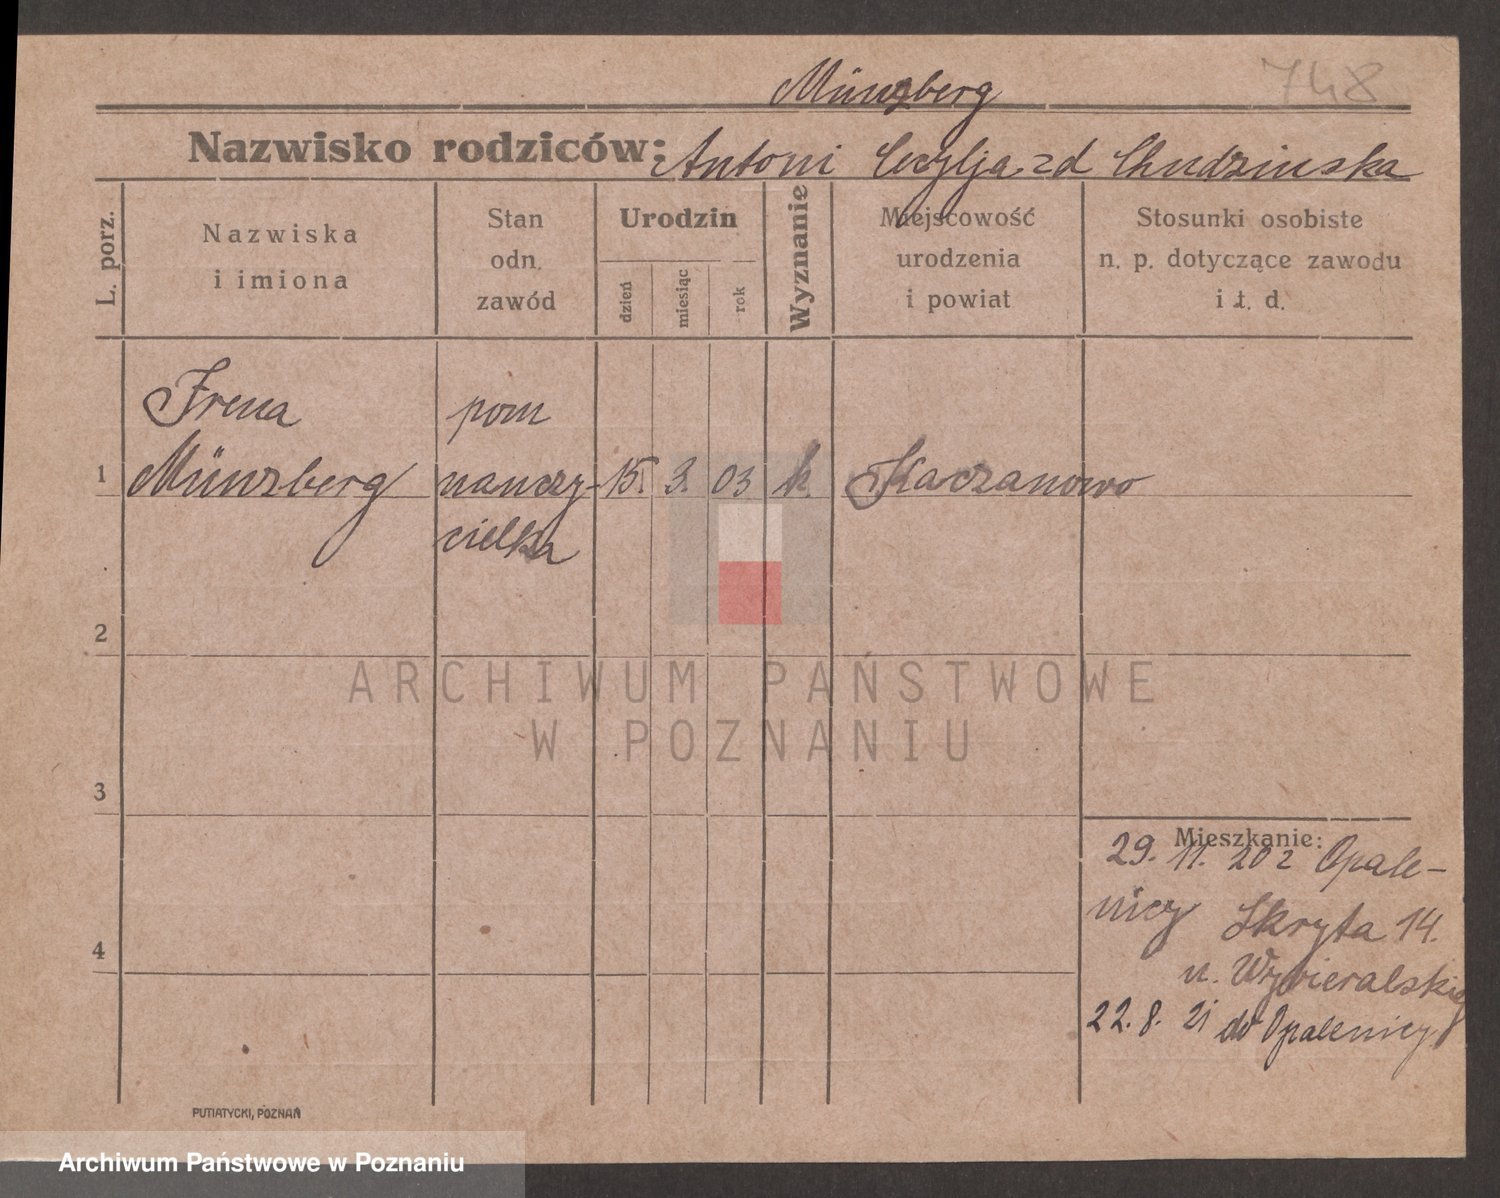 748
Münzberg
Nazwisko rodziców: Antoni Cecylja zd Chudzinska
L. porz.
Nazwiska
i imiona
Stan
odn.
zawód
Urodzin
dzień
miesiąc
rok
Wyznanie
Miejscowość
urodzenia
i powiat
Stosunki osobiste
n. p. dotyczące zawodu
i t. d.
Irena
pom
1
Münzberg
nauczy-
15. 3. 03 k. Kaczanowo
cielka
2
3
4
Mieszkanie:
29. 11. 20 z Opale-
nicy Skryta 14.
u. Wywieralskiej
22. 8. 21 do Opalenicy
PUTIATYCKI, POZNAŃ
ARCHIWUM PAŃSTWOWE
W POZNANIU
Archiwum Państwowe w Poznaniu